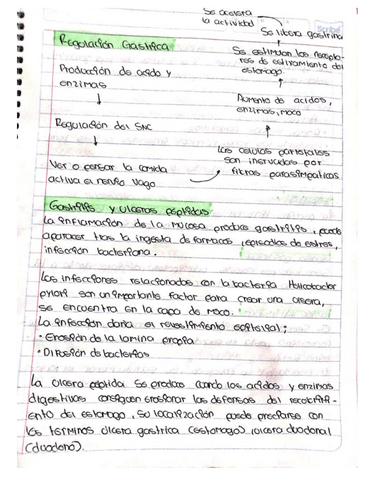 Se acelera
la actividad
Se libera gastrina
Regulación Gastrica
Se estimulan los recepto-
res de estiramiento del
estomago.
Producción de acido y
enzimas
Aumento de acidos,
enzimas, moco
Regulación del SNC
Las celulas parietales
son inervadas por
fibras parasimpaticas
Ver o pensar la comida
activa el nervio vago
Gastritis y ulceras peptidas
La inflamación de la mucosa produce gastritis, puede
aparecer tras la ingesta de farmacos, episodios de estres,
infección bacteriana.
Las infecciones relacionadas con la bacteria Helicobacter
pylori son un importante factor para crear una ulcera,
se encuentra en la capa de moco.
La infección daña el revestimiento epitelial;
· Erosión de la lamina propia
· Difusión de bacterias
La ulcera peptida se produce cuando los acidos y enzimas
digestivas consiguen erosionar las defensas del recubrimi-
ento del estomago, su localización puede precisarse con
los terminos ulcera gastrica (estomago) ulcera duodenal
(duodeno).